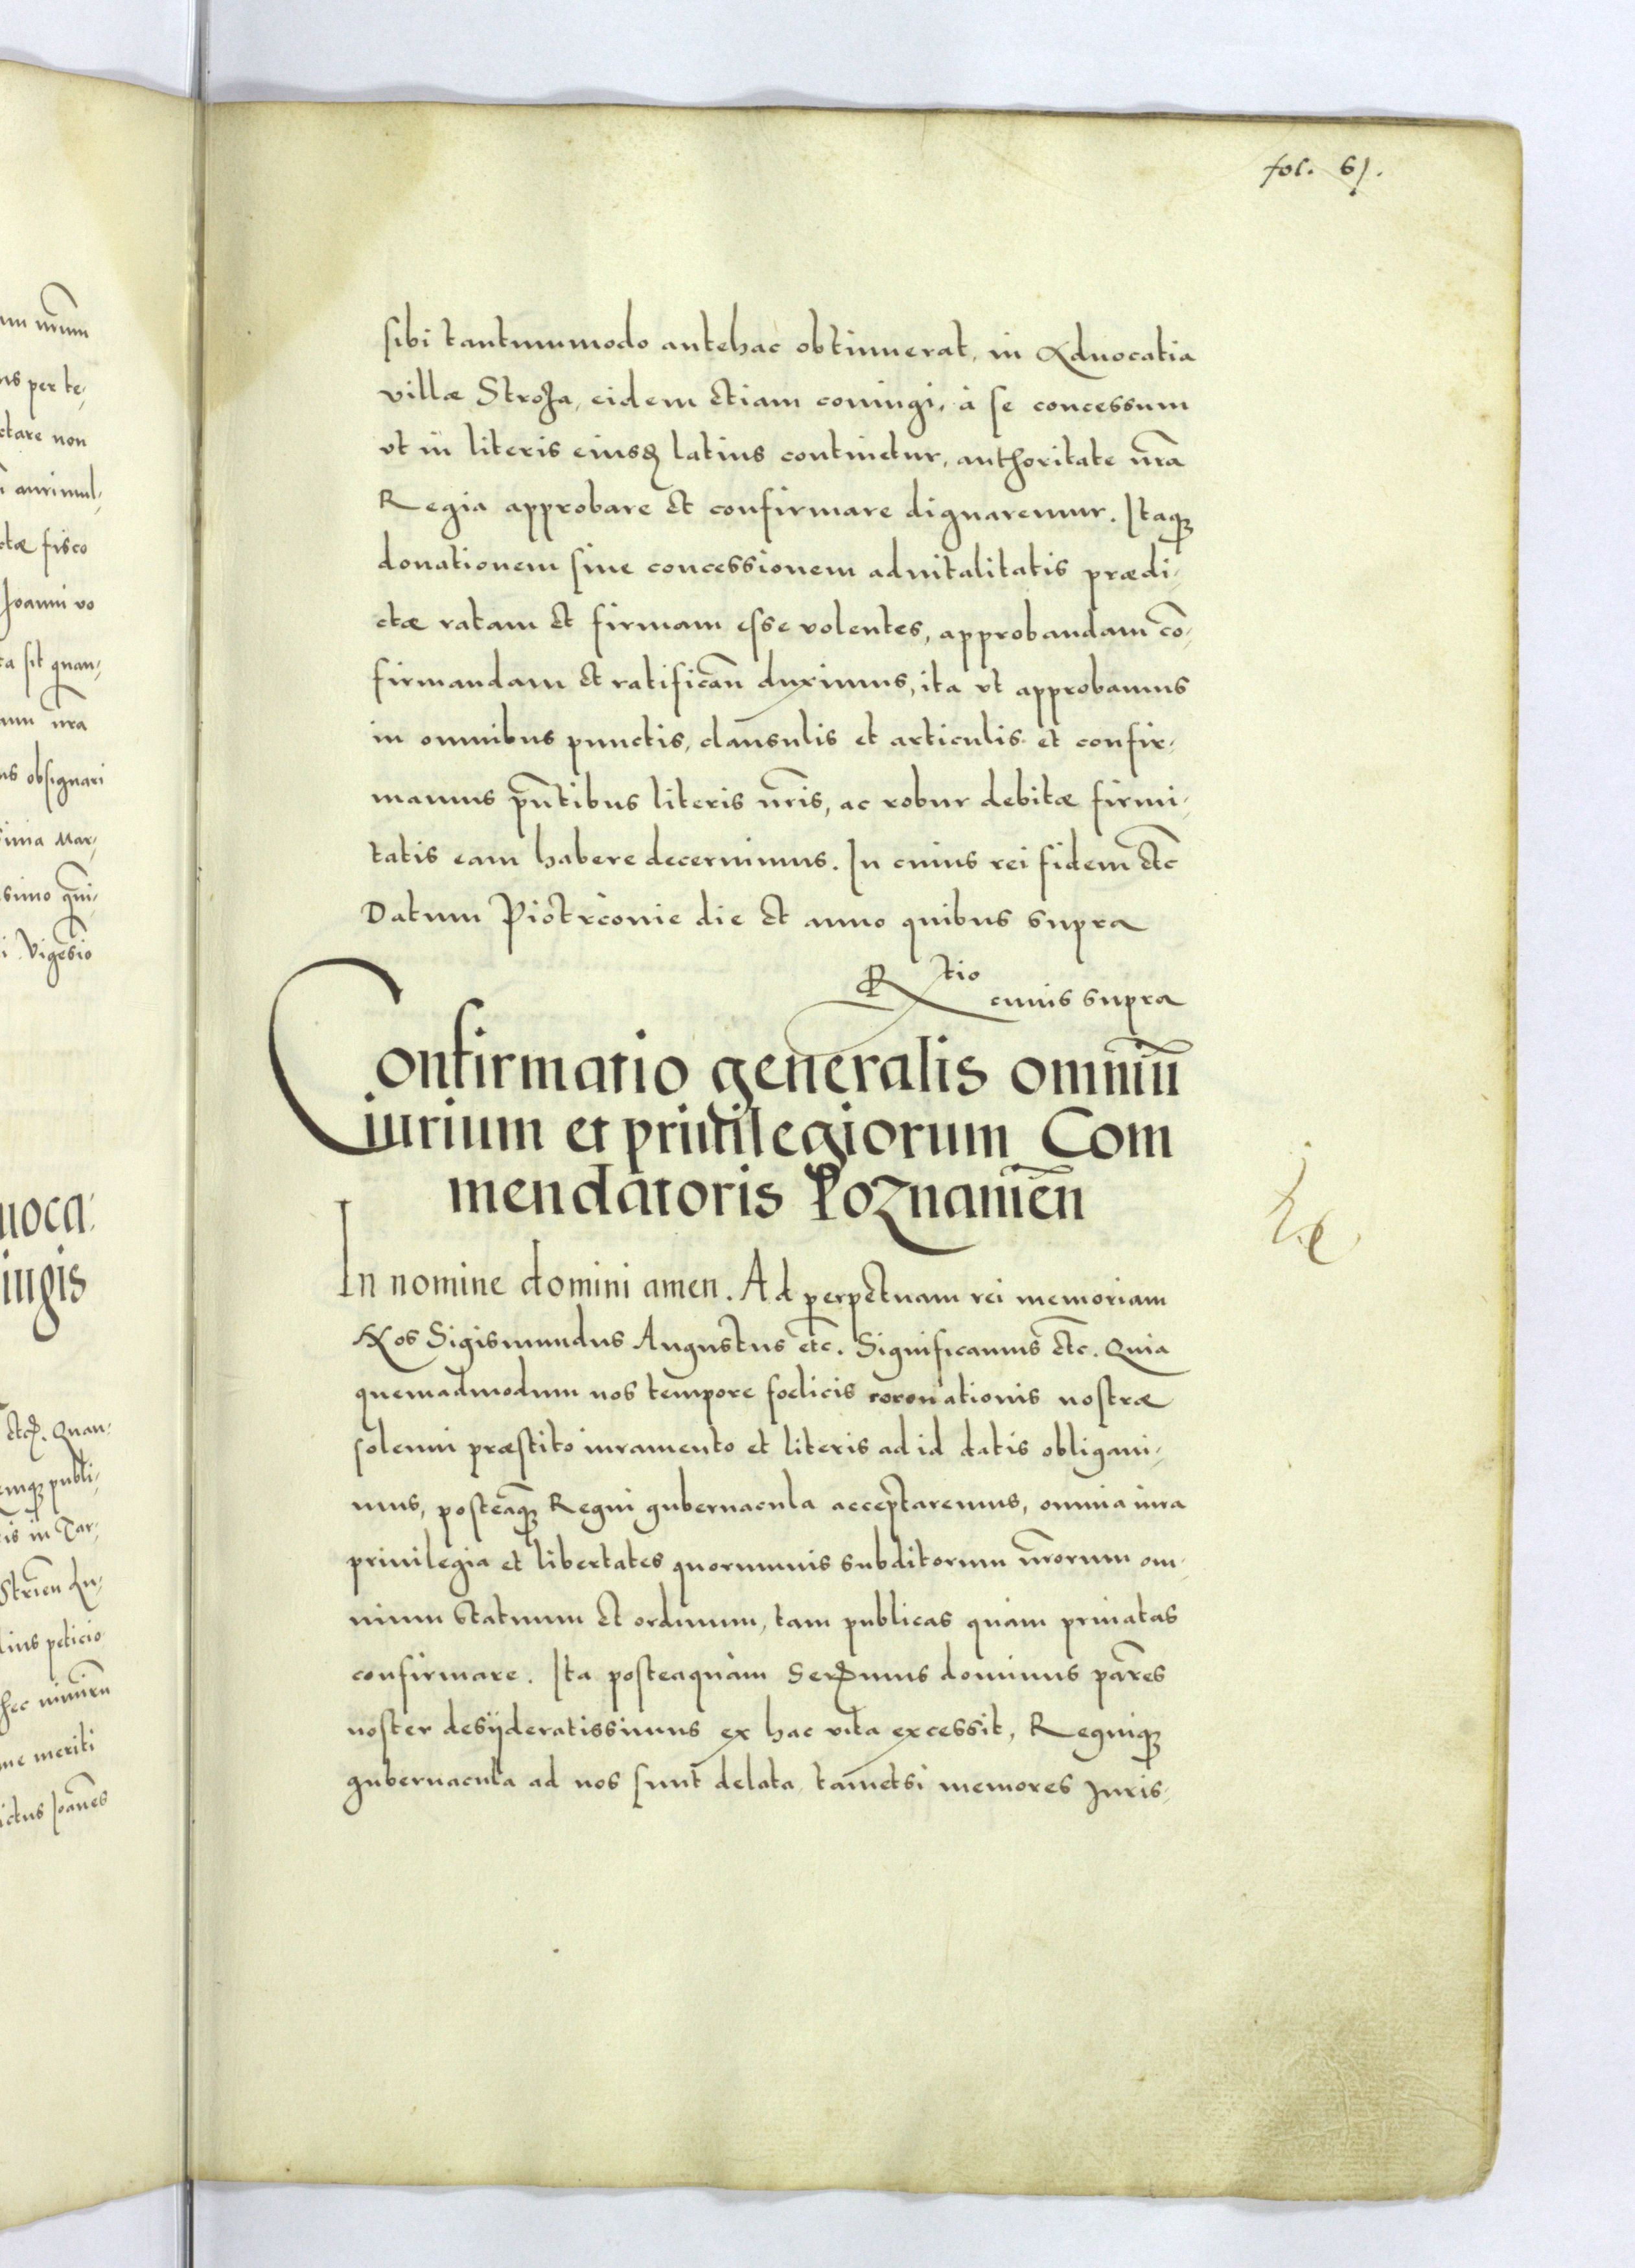 fol. 61.
sibi tantummodo antehac obtinuerat, in Aduocatia
villæ Stroża, eidem etiam coniugi, à se concessum
vt in literis eiusd latius continetur, authoritate nr̃a
Regia approbare et confirmare dignaremur. Itaqꝫ
donationem siue concessionem aduitalitatis prædi,
ctæ ratam et firmam esse volentes, approbandam cõ,
firmandam et ratificañ duximus, ita vt approbamus
in omnibus punctis, clausulis et articulis et confir,
mamus pñtibus literis nr̃is, ac robur debitæ firmi,
tatis eam habere decernimus. In cuius rei fidem etc
Datum Piotrcouie die et anno quibus supra
R tio
cuius supra
Confirmatio generalis omniũ
iurium et priuilegiorum Com
mendatoris Poznanieñ
In nomine domini amen. Ad perpetuam rei memoriam
Nos Sigismundus Augustus etc. Significamus etc. Quia
quemadmodum nos tempore foelicis coronationis nostræ
solenni præstito iuramento et literis ad id datis obligaui,
mus, posteaqꝫ Regni gubernacula acceptaremus, omnia iura
priuilegia et libertates quorumuis subditorum nr̃orum om,
nium statuum et ordinum, tam publicas quàm priuatas
confirmare. Ita posteaquàm Serꝰmus dominus par̃es
noster desÿderatissimus ex hac vita excessit, Regniqꝫ
gubernacula ad nos sunt delata, tametsi memores Juris,